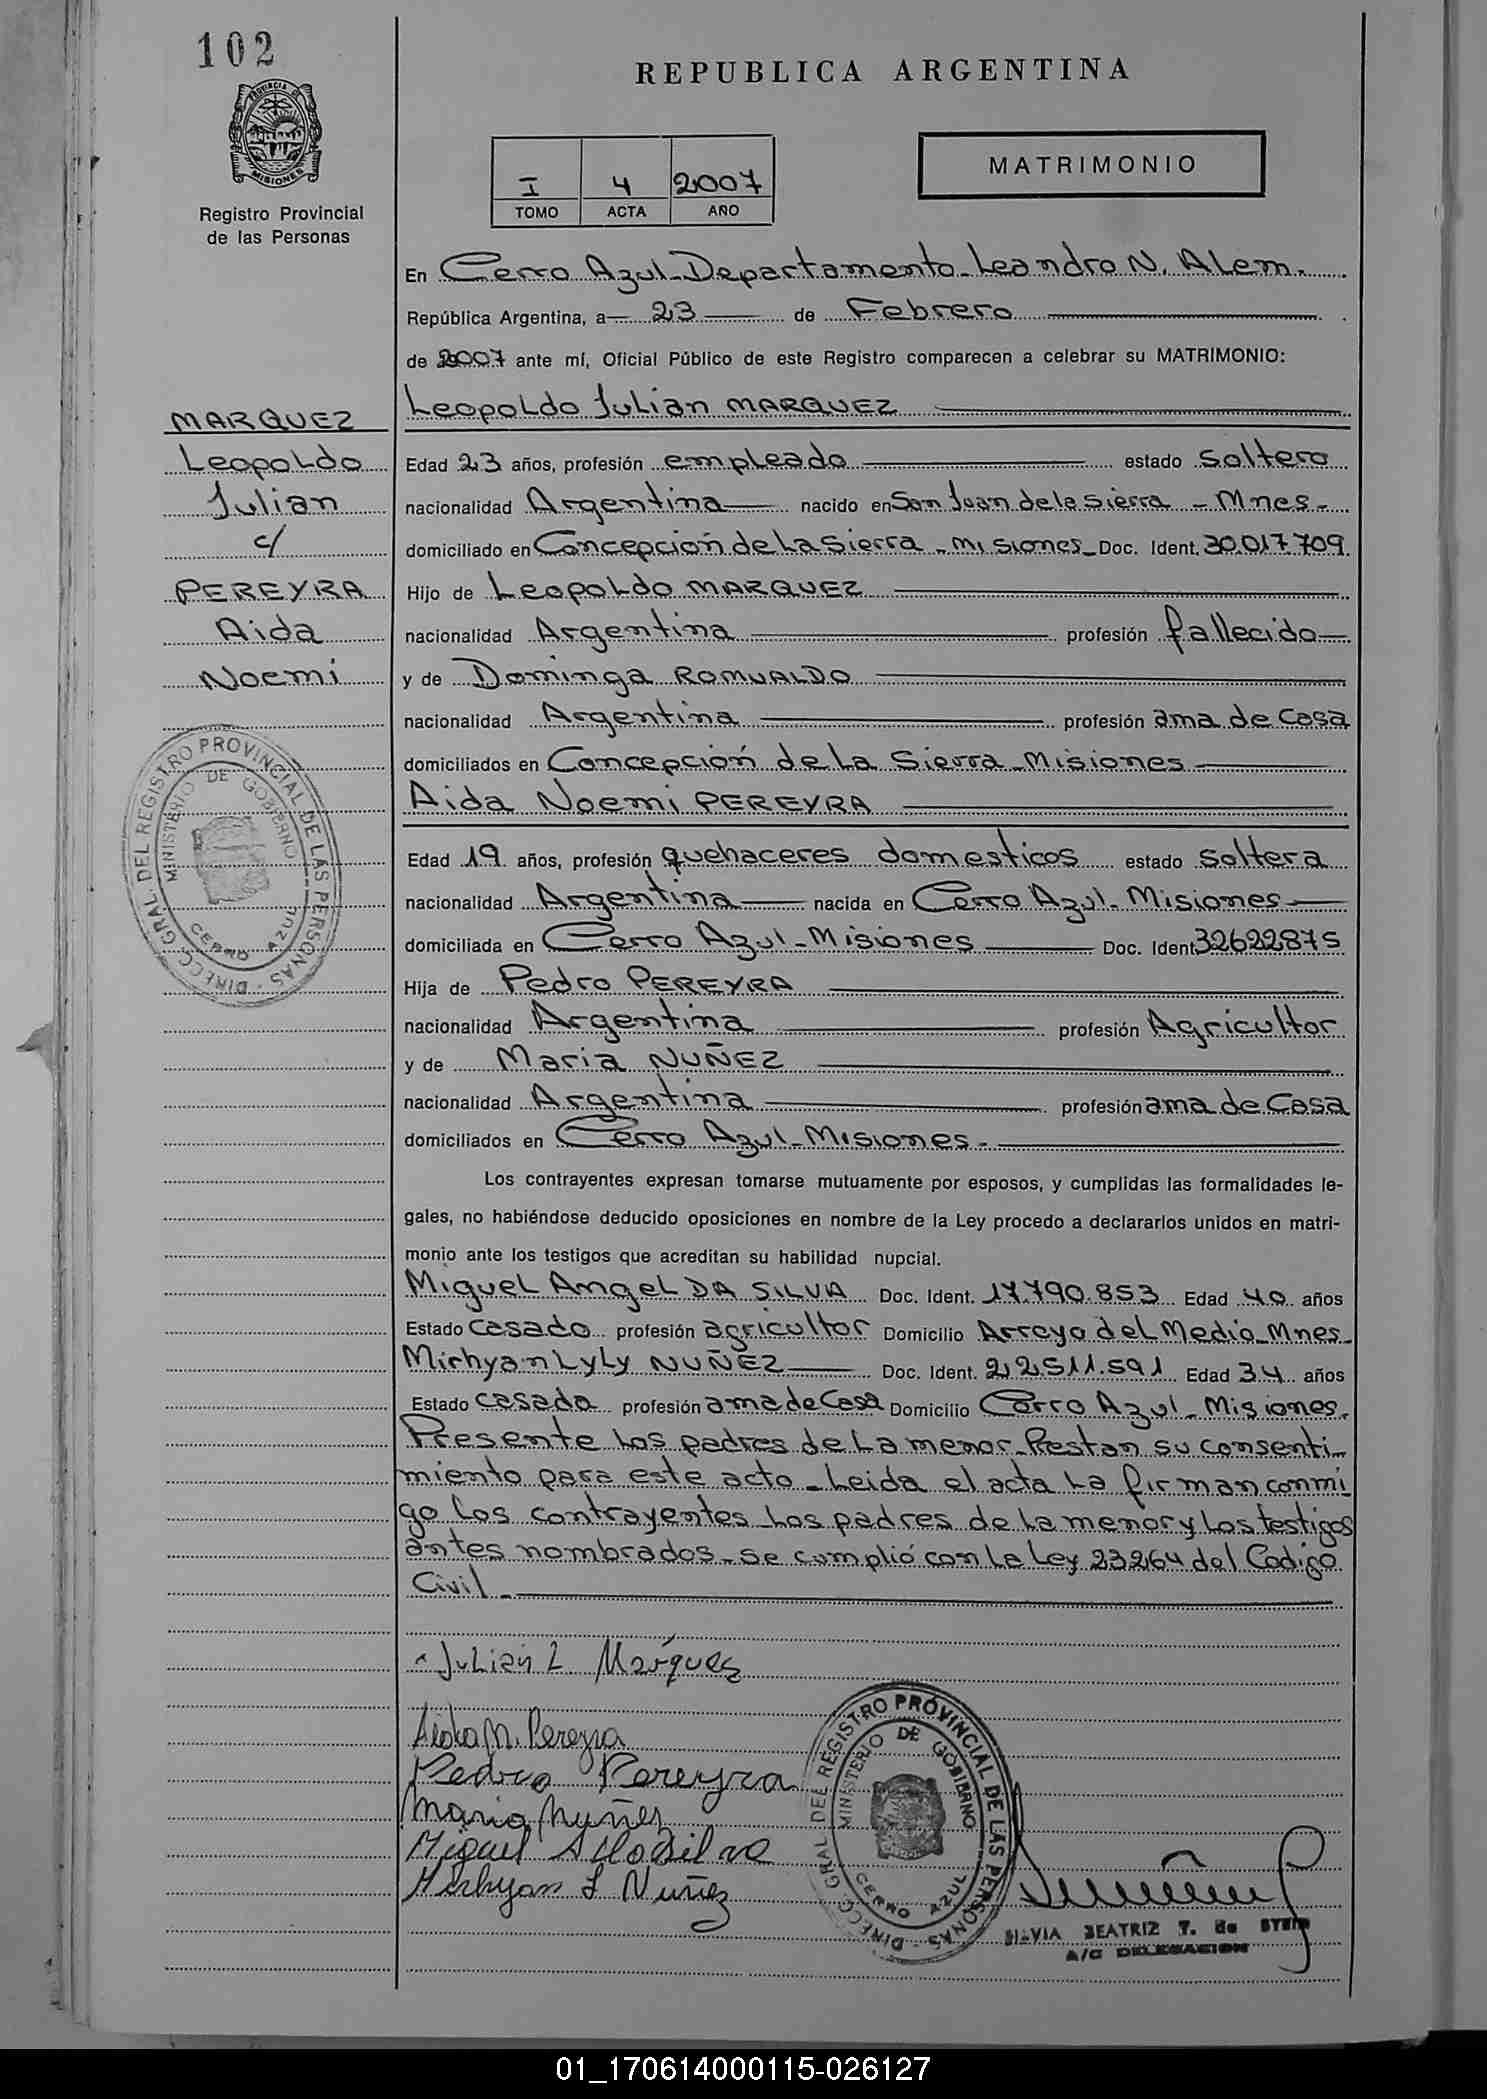 102
REPUBLICA ARGENTINA
PROVINCIA DE
MISIONES
Registro Provincial
de las Personas
MATRIMONIO
I 4 2007
TOMO ACTA AÑO
En Cerro Azul - Departamento - Leandro N. Alem.
República Argentina, a 23 de Febrero
de 2007 ante mí, Oficial Público de este Registro comparecen a celebrar su MATRIMONIO:
Leopoldo Julian MARQUEZ
MARQUEZ
Leopoldo
Julian
c/
PEREYRA
Aida
Noemi
Edad 23 años, profesión empleado estado soltero
nacionalidad Argentina nacido en San Juan de la Sierra - Mnes -
domiciliado en Concepción de La Sierra - Misiones - Doc. Ident. 30.017.709
Hijo de Leopoldo MARQUEZ
nacionalidad Argentina profesión fallecido
y de Dominga ROMUALDO
nacionalidad Argentina profesión ama de casa
domiciliados en Concepción de La Sierra - Misiones
Aida Noemi PEREYRA
Edad 19 años, profesión quehaceres domesticos estado soltera
nacionalidad Argentina nacida en Cerro Azul - Misiones
domiciliada en Cerro Azul - Misiones Doc. Ident. 32622875
Hija de Pedro PEREYRA
nacionalidad Argentina profesión Agricultor
y de Maria NUÑEZ
nacionalidad Argentina profesión ama de Casa
domiciliados en Cerro Azul - Misiones -
Los contrayentes expresan tomarse mutuamente por esposos, y cumplidas las formalidades le-
gales, no habiéndose deducido oposiciones en nombre de la Ley procedo a declararlos unidos en matri-
monio ante los testigos que acreditan su habilidad nupcial.
Miguel Angel DA SILVA Doc. Ident. 17.790.853 Edad 40 años
Estado casado profesión agricultor Domicilio Arroyo del Medio - Mnes -
Mirhyan Lyly NUÑEZ Doc. Ident. 22.511.591 Edad 34 años
Estado casada profesión ama de Casa Domicilio Cerro Azul - Misiones.
Presente los padres de la menor - Prestan su consenti-
miento para este acto - Leida el acta La firman conmi
go los contrayentes - Los padres de la menor y Los testigos
antes nombrados - se cumplió con La Ley 23264 del Codigo
Civil -
Julian L. Marquez
Aida N. Pereyra
Pedro Pereyra
Maria Nuñez
Miguel A Da Silva
Mirhyan L Nuñez
DIRECC. GRAL. DEL REGISTRO PROVINCIAL DE LAS PERSONAS
MINISTERIO DE GOBIERNO
CERRO AZUL
DIRECC. GRAL. DEL REGISTRO PROVINCIAL DE LAS PERSONAS
MINISTERIO DE GOBIERNO
CERRO AZUL
SILVIA BEATRIZ T. de
A/C DELEGACION
01_170614000115-026127